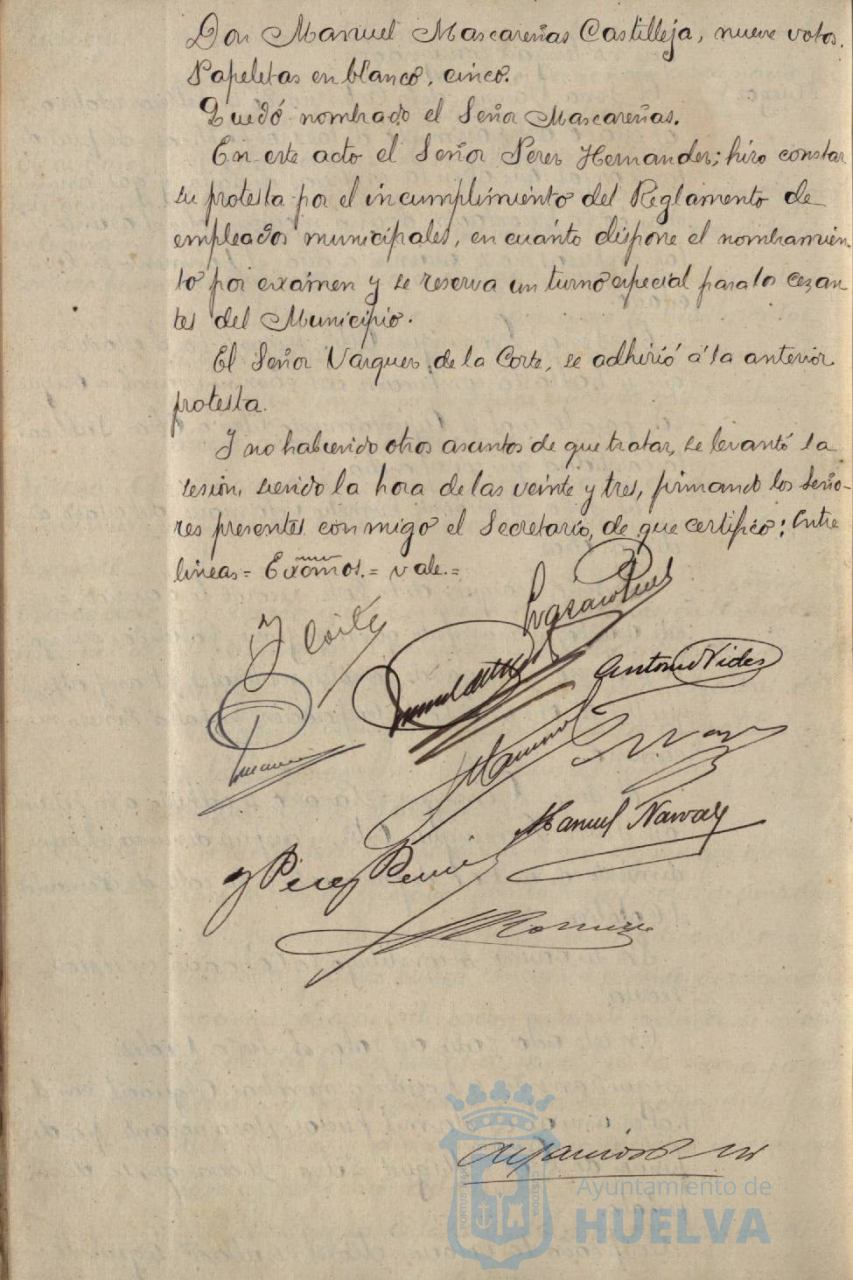 Don Manuel Mascareñas Castilleja, nueve votos.
Papeletas en blanco, cinco.
Quedó nombrado el Señor Mascareñas.
En este acto el Señor Perez Hernandez; hizo constar
su protesta por el incumplimiento del Reglamento de
empleados municipales, en cuánto dispone el nombramien-
to por exámen y se reserva un turno especial para los cezan-
tes del Municipio.
El Señor Vázquez de la Corte, se adhirió á la anterior
protesta.
Y no habiendo otros asuntos de que tratar, se levantó la
sesión, siendo la hora de las veinte y tres, firmando los Seño-
res presentes conmigo el Secretario, de que certifico: Entre
lineas = Exámos. = vale. =
Antonio Vides
Manuel Navarro
Ayuntamiento de
HUELVA